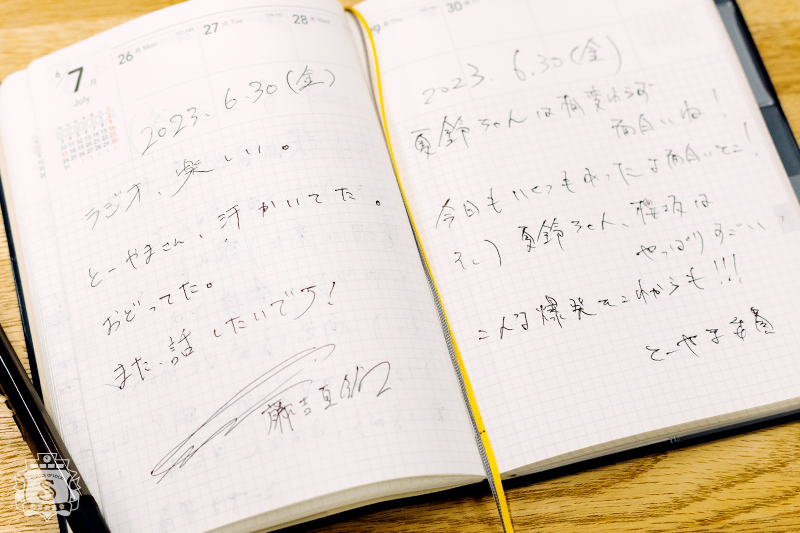 6
7月
July
26 月 Mon
27 火 Tue
28 水 Wed
2023. 6.30 (金)
ラジオ、楽しい。
とーやまさん、汗かいてた。
おどってた。
また、話したいです!
藤吉夏鈴
29 木 Thu
30 金
2023. 6.30 (金)
夏鈴ちゃんは相変わらず
面白いね!
今日もいつもかったな面白いとこ!
そして夏鈴ちゃん、櫻坂は
やっぱりすごい
こんな爆発をこれからも!!!
とーやま委員